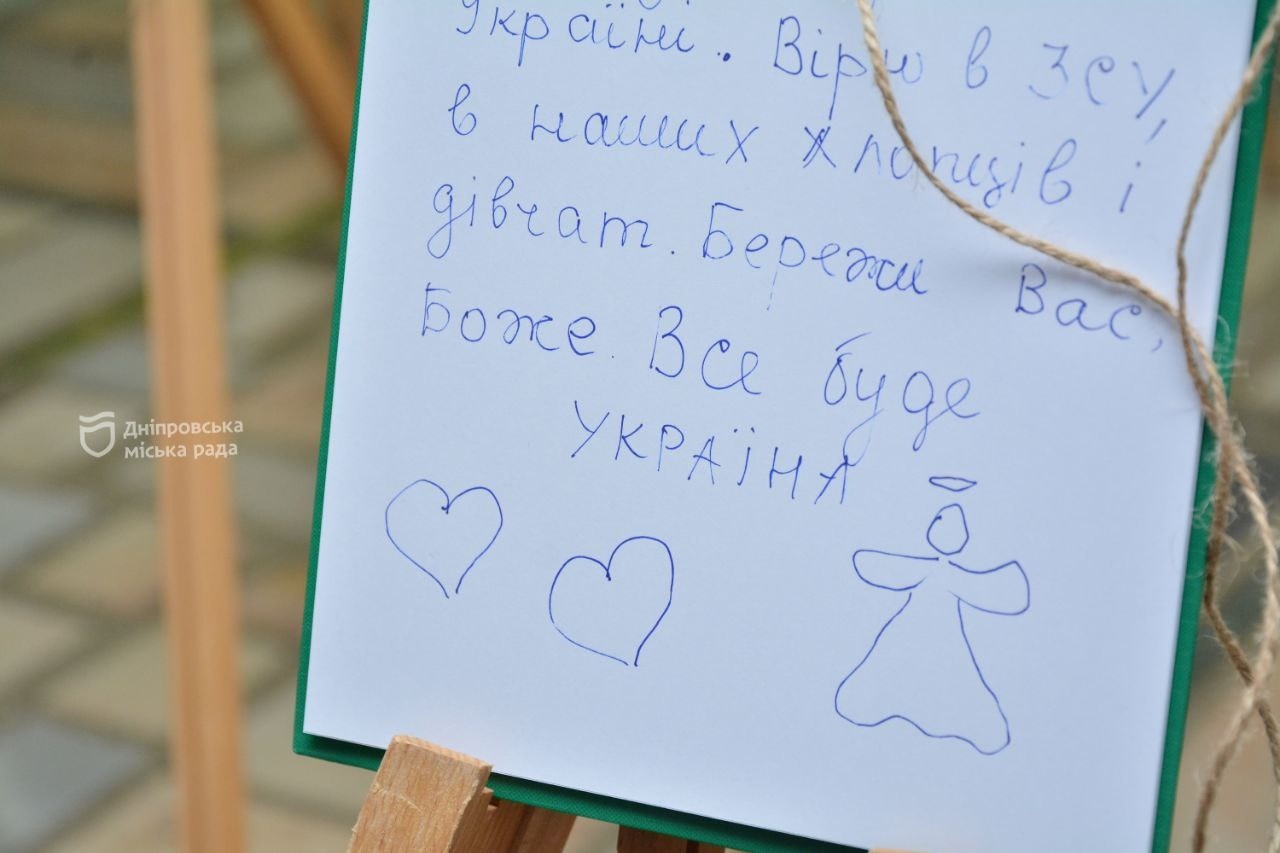 Україні. Вірю в ЗСУ,
в наших хлопців і
дівчат. Бережи Вас,
Боже. Все буде
УКРАЇНА
Дніпровська
міська рада